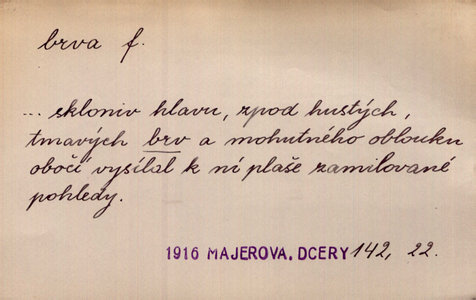 brva f.
... skloniv hlavu, zpod hustých,
tmavých brv a mohutného oblouku
obočí vysílal k ní plaše zamilované
pohledy.
1916 MAJEROVA. DCERY 142, 22.